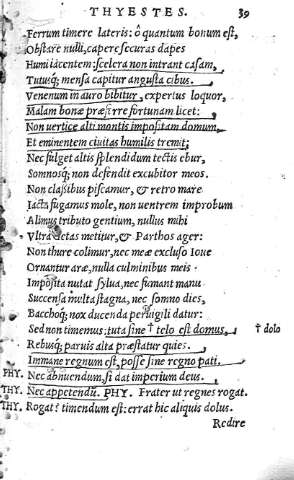 THYESTES. 39
Ferrum timere lateris: ô quantum bonum est,
Obstare nulli, capere securas dapes
Humi iacentem: scelera non intrant casam,
Tutusq; mensa capitur angusta cibus.
Venenum in auro bibitur, expertus loquor,
Malam bonæ præferre fortunam licet:
Non uertice alti montis impositam domum,
Et eminentem ciuitas humilis tremit;
Nec fulget altis splendidum tectis ebur,
Somnosq; non defendit excubitor meos.
Non classibus piscamur, & retro mare
Iacta fugamus mole, non uentrem improbum
Alimus tributo gentium, nullus mihi
Vltra Getas metitur, & Parthos ager:
Non thure colimur, nec meæ excluso Ioue
Ornantur aræ, nulla culminibus meis
Imposita nutat sylua, nec fumant manu
Succensa multa stagna, nec somno dies,
Bacchoq; nox ducenda peruigili datur:
Sed non timemus: tuta sine † telo est domus, † dolo
Rebusq; paruis alta præstatur quies.
Immane regnum est, posse sine regno pati.
PHY. Nec abnuendum, si dat imperium deus.
THY. Nec appetendũ. PHY. Frater ut regnes rogat.
THY. Rogat? timendum est: errat hic aliquis dolus.
Redire